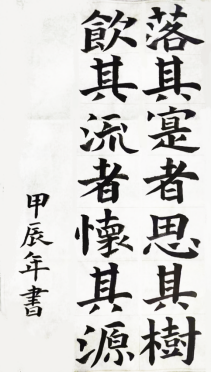 落其寔者思其樹
飲其流者懷其源
甲辰年書